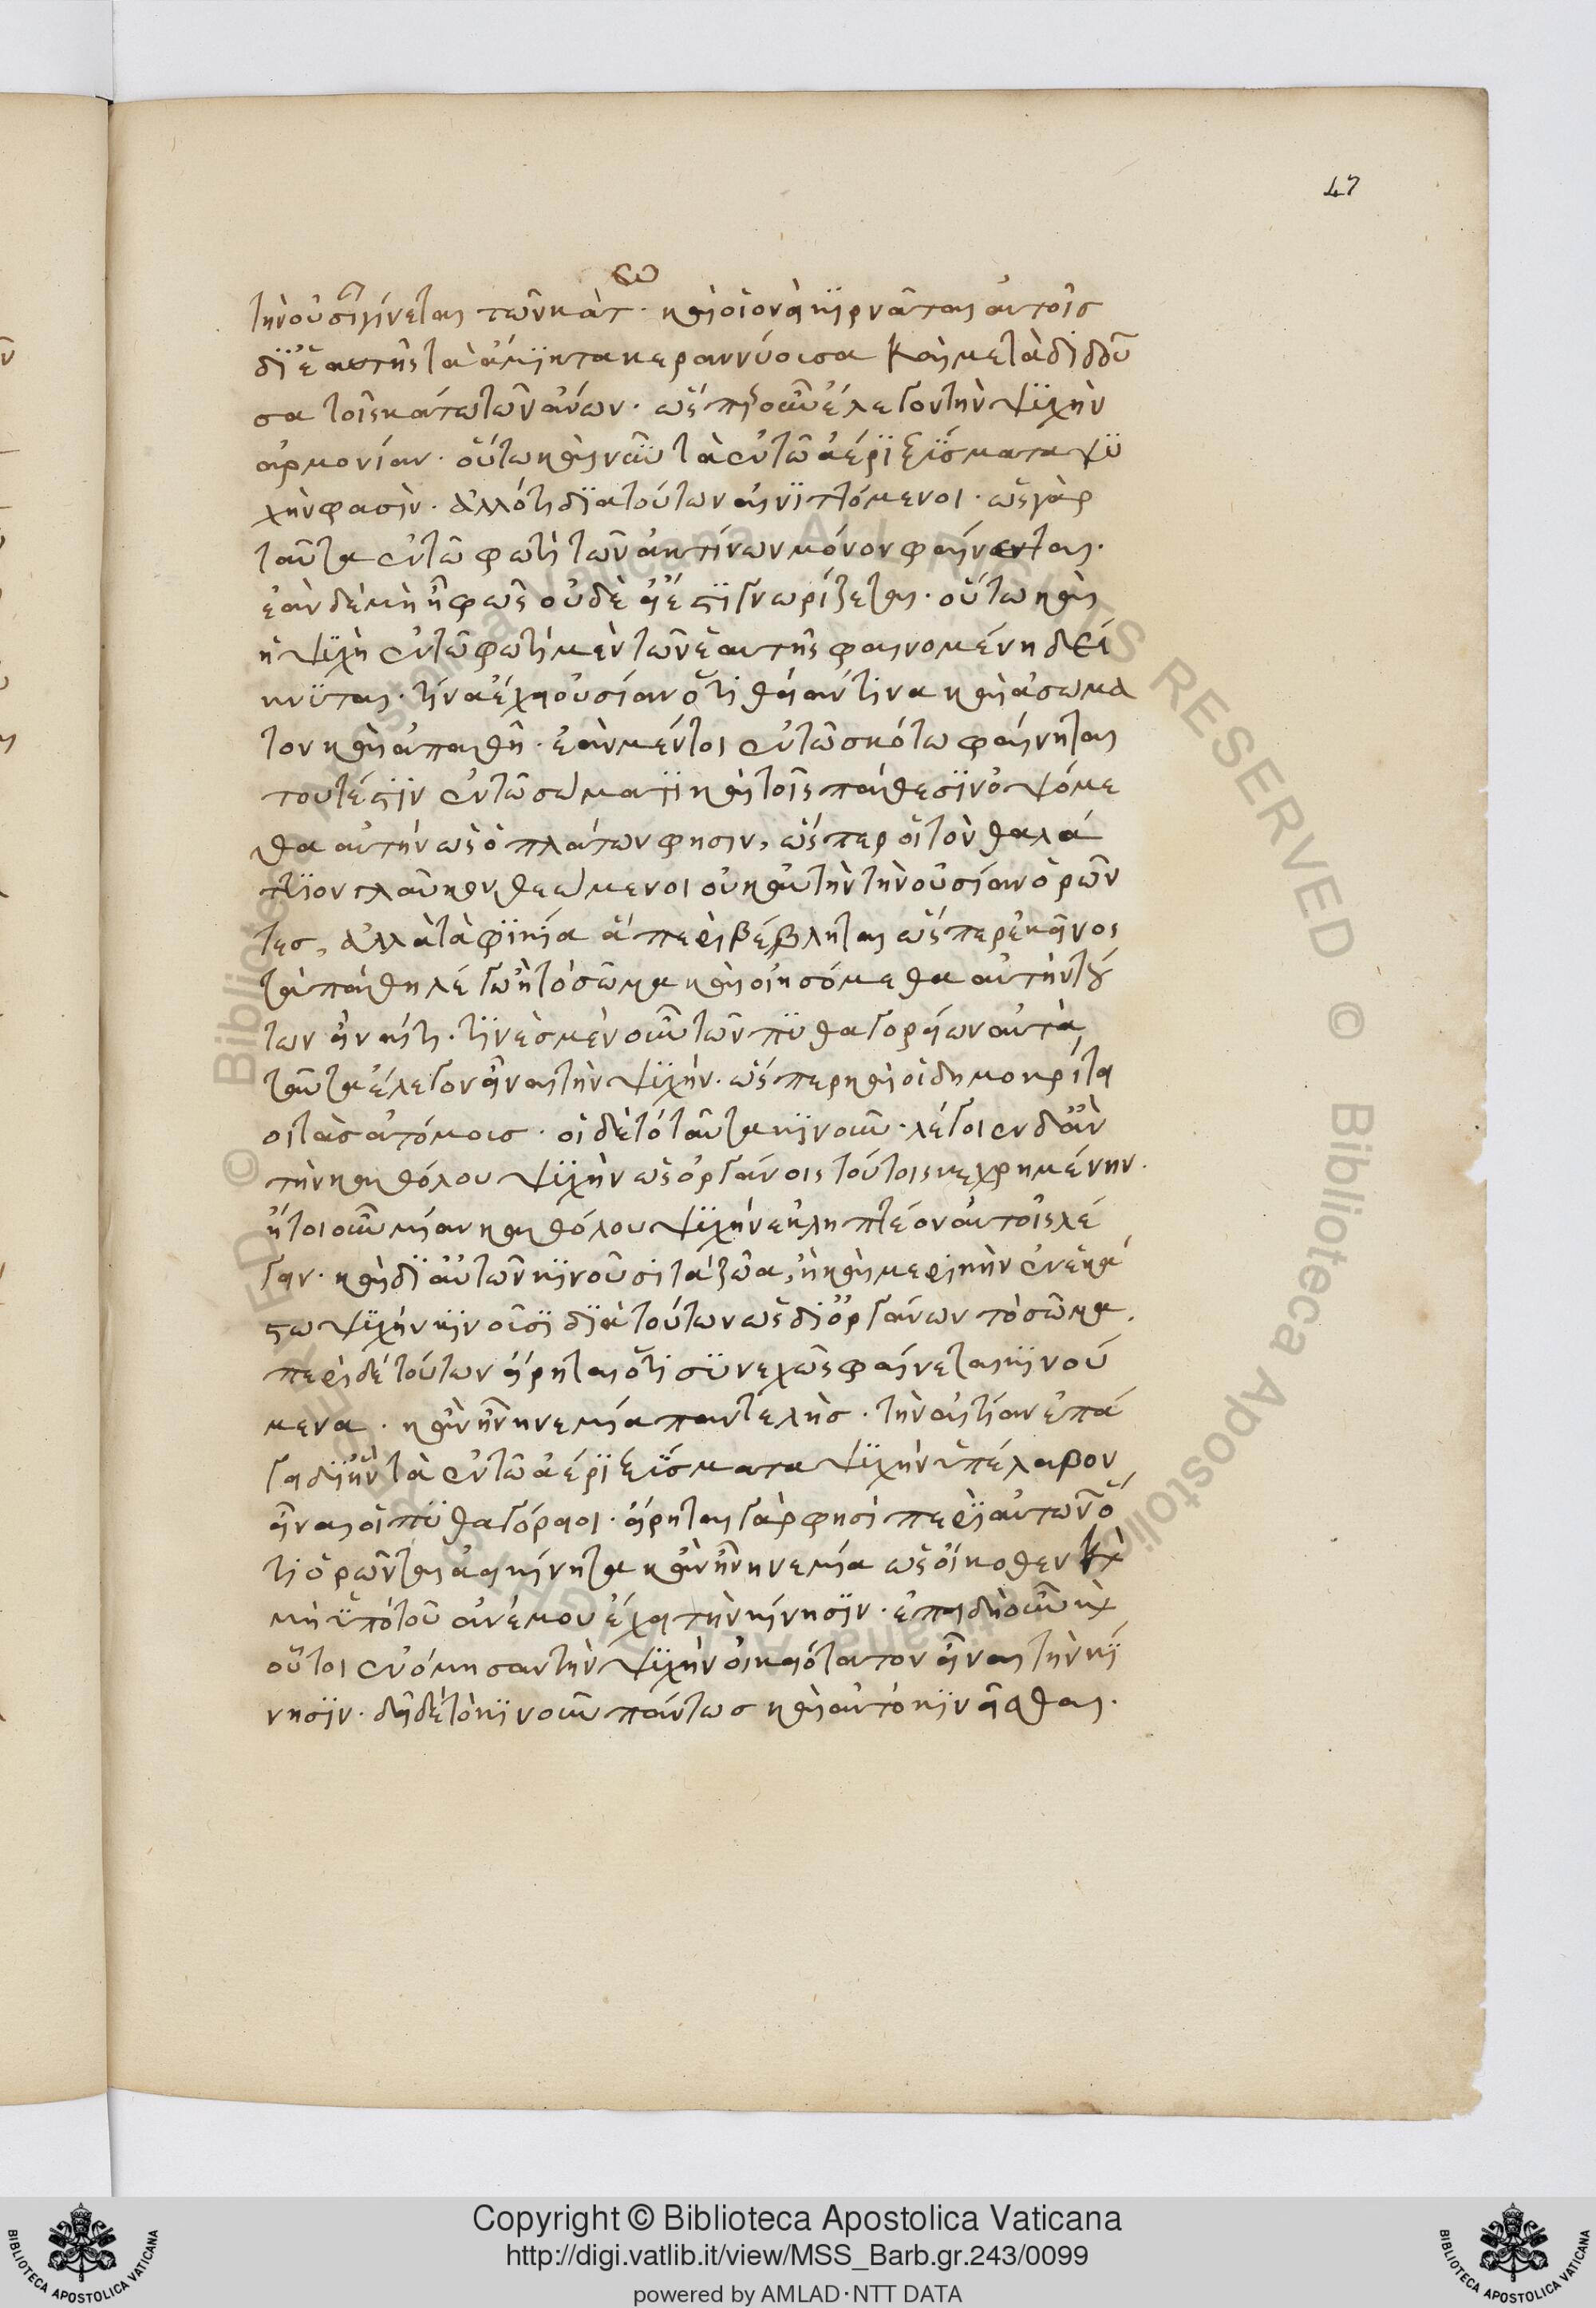 47
τὴν οὐσίαν γίνεται τῶν κάτω · καὶ οἱονεὶ κιρνᾶται αὐτοῖς
δι' ἑαυτῆς τὰ ἄμικτα κεραννύουσα καὶ μεταδιδοῦ
σα τοῖς κάτω τῶν ἄνω · ὥσπερ οὖν ἔλεγον τὴν ψυχὴν
ἁρμονίαν · οὕτω καὶ νῦν τὰ ἐν τῶ ἀέρι ξύσματα ψυ
χήν φασιν · ἄλλό τι διὰ τούτων αἰνιττόμενοι · ὡς γὰρ
ταῦτα ἐν τῶ φωτὶ τῶν ἀκτίνων μόνον φαίνεται ·
ἐὰν δὲ μὴ ἦ φῶς οὐδὲ εἰ ἔστι γνωρίζεται · οὕτω καὶ
ἡ ψυχὴ ἐν τῶ φωτὶ μὲν τῶ ἑαυτῆς φαινομένη δεί
κνυται · τίνα ἔχει οὐσίαν ὅτι θείαν τινα καὶ ἀσώμα
τον καὶ ἀπαθῆ · ἐὰν μέντοι ἐν τῶ σκότω φαίνηται
τουτέστιν ἐν τῶ σώματι καὶ τοῖς πάθεσιν ὀψόμε
θα αὐτὴν ὡς ὁ πλάτων φησιν, ὥσπερ οἱ τὸν θαλά
ττιον γλαῦκον θεώμενοι οὐκ αὐτὴν τὴν οὐσίαν ὁρῶν
τες, ἀλλὰ τὰ φυκία ἃ περιβέβληται ὥσπερ ἐκεῖνος
τὰ πάθη λέγω ἢ τὸ σῶμα καὶ οἰησόμεθα αὐτὴν τού
των εἶναί τι · τινὲς μὲν οὖν τῶν πυθαγορείων αὐτὰ
ταῦτα ἔλεγον εἶναι τὴν ψυχήν · ὥσπερ καὶ οἱ δημοκρίτει
οι τὰς ἀτόμους · οἱ δὲ τὸ ταῦτα κινοῦν · λέγοιεν δ' ἂν
τὴν καθόλου ψυχὴν ὡς ὀργάνοις τούτοις κεχρημένην ·
ἤτοι οὖν μίαν καθόλου ψυχὴν ἐκληπτέον αὐτοῖς λέ
γειν · καὶ δι' αὐτῶν κινοῦσι τὰ ζῶα, ἢ καὶ μερικὴν ἐν ἑκά
στω ψυχὴν κινοῦσι διὰ τούτων ὡς δι' ὀργάνων τὸ σῶμα ·
περὶ δὲ τούτων εἴρηται ὅτι συνεχῶς φαίνεται κινού
μενα · κἂν ἦ νηνεμία παντελής · τὴν αἰτίαν ἐπά
γει δι' ἣν τὰ ἐν τῶ ἀέρι ξύσματα ψυχὴν ὑπέλαβον
εἶναι οἱ πυθαγόρειοι · εἴρηται γάρ φησι περὶ αὐτῶν ὅ
τι ὁρῶνται ἀεικίνητα κἂν ἦ νηνεμία ὡς οἴκοθεν καὶ
μὴ ὑπὸ τοῦ ἀνέμου ἔχει τὴν κίνησιν · ἐπειδὴ οὖν καὶ
οὗτοι ἐνόμισαν τὴν ψυχὴν οἰκειότατον εἶναι τὴν κί
νησιν · δεῖ δὲ τὸ κινοῦν πάντως καὶ αὐτὸ κινεῖσθαι ·
Copyright © Biblioteca Apostolica Vaticana
http://digi.vatlib.it/view/MSS_Barb.gr.243/0099
powered by AMLAD·NTT DATA